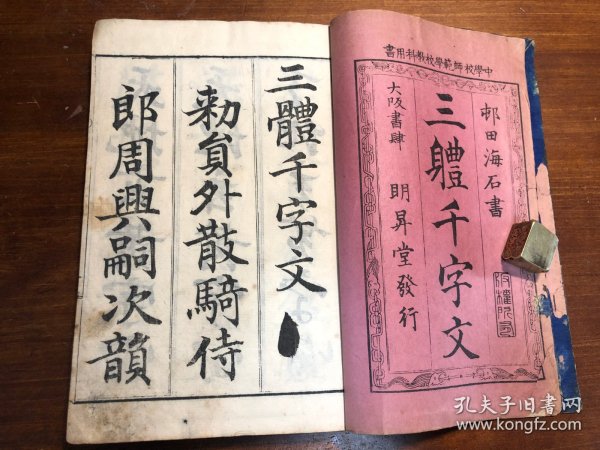 中學校師範學校教科用書
邨田海石書
三體千字文
大阪書肆 明昇堂發行
三體千字文
勅員外散騎侍
郎周興嗣次韻
孔夫子旧书网
www.kongfz.com